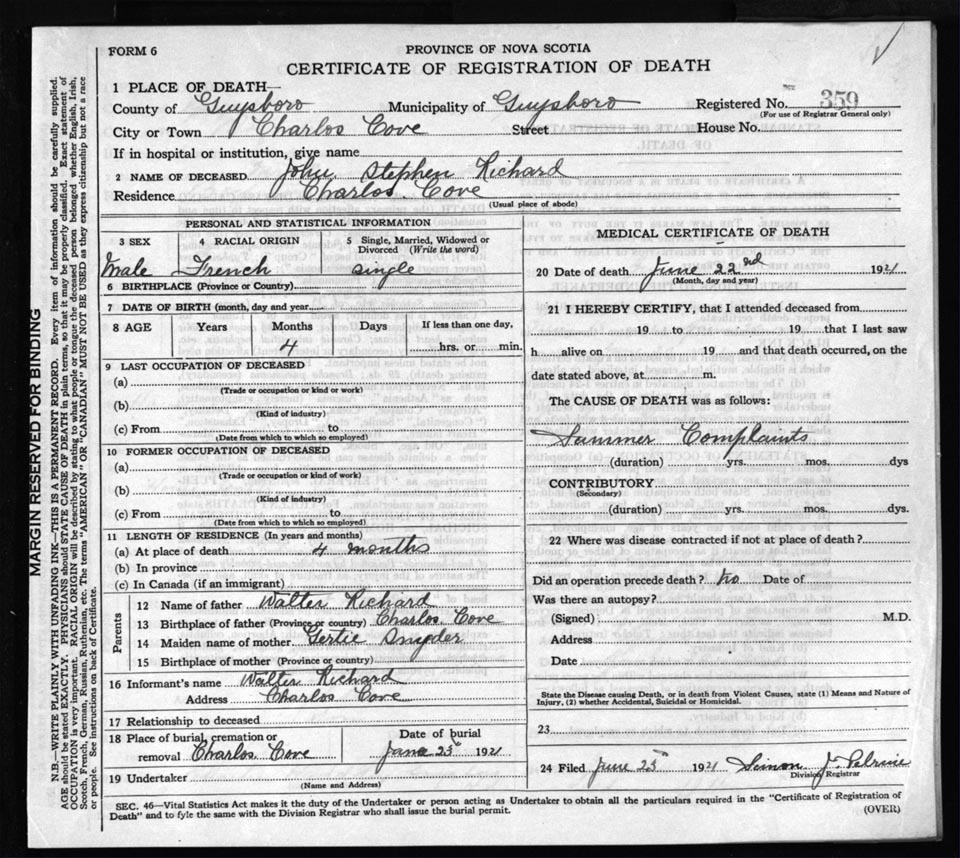 FORM 6
PROVINCE OF NOVA SCOTIA
CERTIFICATE OF REGISTRATION OF DEATH
1 PLACE OF DEATH—
County of Guysboro Municipality of Guysboro Registered No. 359
(For use of Registrar General only)
City or Town Charlos Cove Street House No.
If in hospital or institution, give name
2 NAME OF DECEASED John Stephen Richard
Residence Charlos Cove
(Usual place of abode)
PERSONAL AND STATISTICAL INFORMATION
3 SEX 4 RACIAL ORIGIN 5 Single, Married, Widowed or Divorced (Write the word)
Male French single
6 BIRTHPLACE (Province or Country)
7 DATE OF BIRTH (month, day and year)
8 AGE Years Months Days If less than one day,
4 hrs. or min.
9 LAST OCCUPATION OF DECEASED
(a)
(Trade or occupation or kind or work)
(b)
(Kind of industry)
(c) From to
(Date from which to which so employed)
10 FORMER OCCUPATION OF DECEASED
(a)
(Trade or occupation or kind of work)
(b)
(Kind of industry)
(c) From to
(Date from which to which so employed)
11 LENGTH OF RESIDENCE (In years and months)
(a) At place of death 4 months
(b) In province
(c) In Canada (if an immigrant)
Parents
12 Name of father Walter Richard
13 Birthplace of father (Province or country) Charlos Cove
14 Maiden name of mother Gertie Snyder
15 Birthplace of mother (Province or country)
16 Informant's name Walter Richard
Address Charlos Cove
17 Relationship to deceased
18 Place of burial, cremation or removal Charlos Cove
Date of burial
June 23 1921
19 Undertaker
(Name and Address)
MEDICAL CERTIFICATE OF DEATH
20 Date of death June 22nd 1921
(Month, day and year)
21 I HEREBY CERTIFY, that I attended deceased from
19 to 19 that I last saw
h alive on 19 and that death occurred, on the
date stated above, at m.
The CAUSE OF DEATH was as follows:
Summer Complaints
(duration) yrs. mos. dys
CONTRIBUTORY
(Secondary)
(duration) yrs. mos. dys.
22 Where was disease contracted if not at place of death?
Did an operation precede death? no Date of
Was there an autopsy?
(Signed) M.D.
Address
Date
State the Disease causing Death, or in death from Violent Causes, state (1) Means and Nature of
Injury, (2) whether Accidental, Suicidal or Homicidal.
23
24 Filed June 23 1921 Simon J.
Division Registrar
SEC. 46—Vital Statistics Act makes it the duty of the Undertaker or person acting as Undertaker to obtain all the particulars required in the "Certificate of Registration of
Death" and to fyle the same with the Division Registrar who shall issue the burial permit.
(OVER)
MARGIN RESERVED FOR BINDING
N.B.—WRITE PLAINLY WITH UNFADING INK—THIS IS A PERMANENT RECORD. Every item of information should be carefully supplied.
AGE should be stated EXACTLY. PHYSICIANS should STATE CAUSE OF DEATH in plain terms, so that it may be properly classified. Exact statement of
OCCUPATION is very important. RACIAL ORIGIN will be described by stating to what people or tongue the deceased person belonged whether English, Irish,
Scotch, French, German, Russian, Ruthenian, etc. The terms "AMERICAN" OR "CANADIAN" MUST NOT BE USED as they express citizenship but not a race
or people. See instructions on back of Certificate.